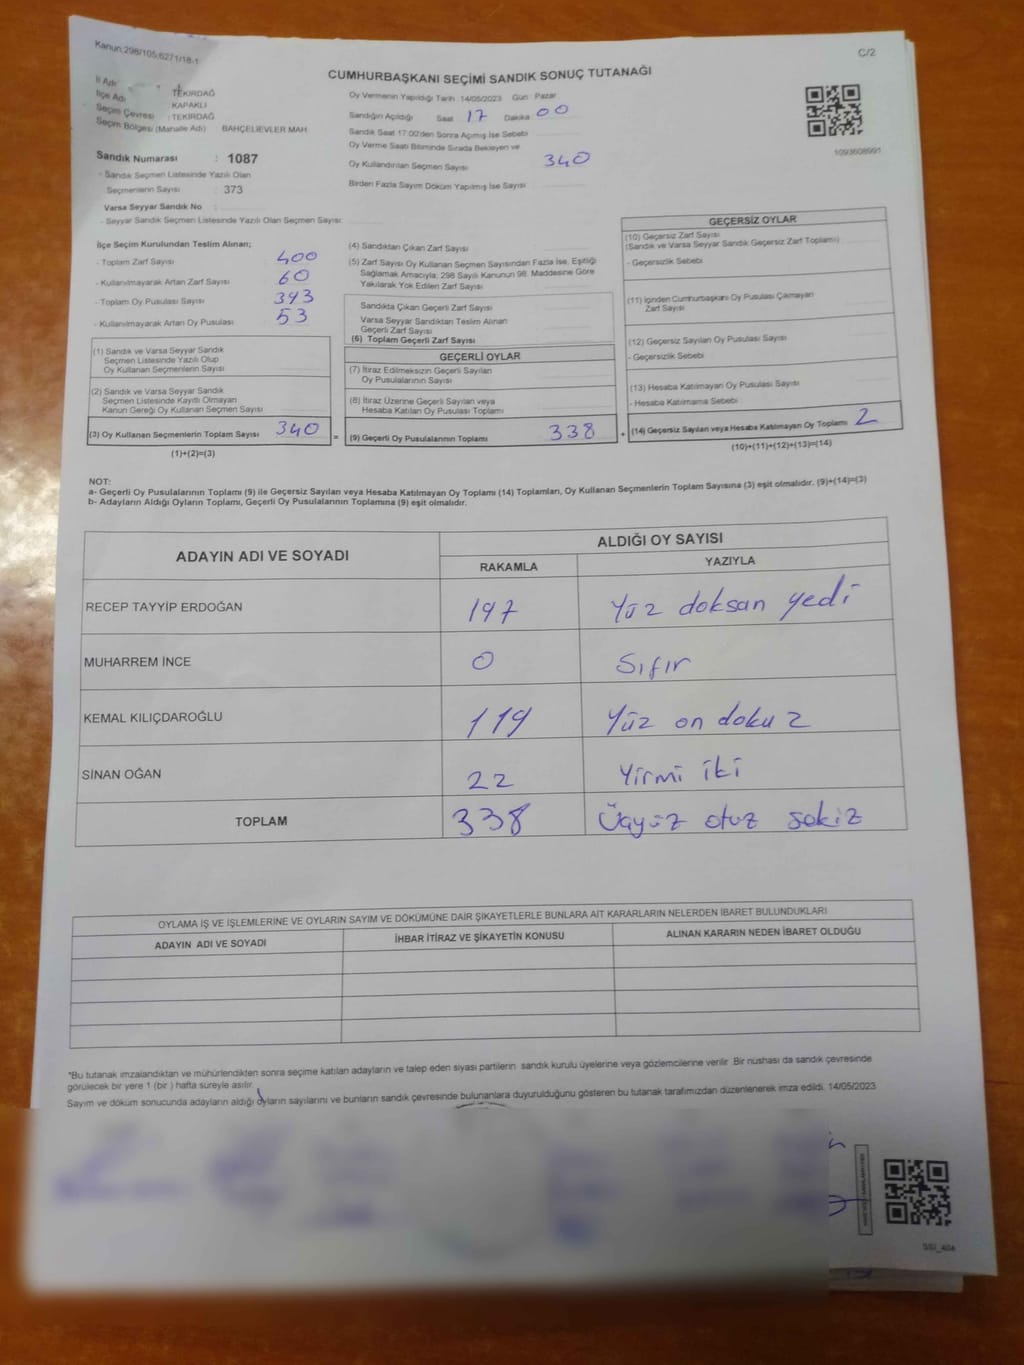 Kanun:298/105;6271/18-1
C/2
CUMHURBAŞKANI SEÇİMİ SANDIK SONUÇ TUTANAĞI
İl Adı : TEKİRDAĞ
İlçe Adı : KAPAKLI
Seçim Çevresi : TEKİRDAĞ
Seçim Bölgesi (Mahalle Adı) BAHÇELİEVLER MAH.
Sandık Numarası : 1087
- Sandık Seçmen Listesinde Yazılı Olan
Seçmenlerin Sayısı : 373
Varsa Seyyar Sandık No
- Seyyar Sandık Seçmen Listesinde Yazılı Olan Seçmen Sayısı:
Oy Vermenin Yapıldığı Tarih :14/05/2023 Gün : Pazar
Sandığın Açıldığı Saat 17 Dakika 00
Sandık Saat 17:00'den Sonra Açmış İse Sebebi
Oy Verme Saati Bitiminde Sırada Bekleyen ve
Oy Kullandırılan Seçmen Sayısı 340
Birden Fazla Sayım Döküm Yapılmış İse Sayısı
1093608991
İlçe Seçim Kurulundan Teslim Alınan;
- Toplam Zarf Sayısı 400
- Kullanılmayarak Artan Zarf Sayısı 60
- Toplam Oy Pusulası Sayısı 393
- Kullanılmayarak Artan Oy Pusulası 53
(1) Sandık ve Varsa Seyyar Sandık
Seçmen Listesinde Yazılı Olup
Oy Kullanan Seçmenlerin Sayısı
(2) Sandık ve Varsa Seyyar Sandık
Seçmen Listesinde Kayıtlı Olmayan
Kanun Gereği Oy Kullanan Seçmen Sayısı
(3) Oy Kullanan Seçmenlerin Toplam Sayısı 340 =
(1)+(2)=(3)
(4) Sandıktan Çıkan Zarf Sayısı
(5) Zarf Sayısı Oy Kullanan Seçmen Sayısından Fazla İse, Eşitliği
Sağlamak Amacıyla; 298 Sayılı Kanunun 98. Maddesine Göre
Yakılarak Yok Edilen Zarf Sayısı
Sandıkta Çıkan Geçerli Zarf Sayısı
Varsa Seyyar Sandıktan Teslim Alınan
Geçerli Zarf Sayısı
(6) Toplam Geçerli Zarf Sayısı
GEÇERLİ OYLAR
(7) İtiraz Edilmeksizin Geçerli Sayılan
Oy Pusulalarının Sayısı
(8) İtiraz Üzerine Geçerli Sayılan veya
Hesaba Katılan Oy Pusulası Toplamı
(9) Geçerli Oy Pusulalarının Toplamı 338 +
GEÇERSİZ OYLAR
(10) Geçersiz Zarf Sayısı
(Sandık ve Varsa Seyyar Sandık Geçersiz Zarf Toplamı)
- Geçersizlik Sebebi
(11) İçinden Cumhurbaşkanı Oy Pusulası Çıkmayan
Zarf Sayısı
(12) Geçersiz Sayılan Oy Pusulası Sayısı
- Geçersizlik Sebebi
(13) Hesaba Katılmayan Oy Pusulası Sayısı
- Hesaba Katılmama Sebebi
(14) Geçersiz Sayılan veya Hesaba Katılmayan Oy Toplamı 2
(10)+(11)+(12)+(13)=(14)
NOT:
a- Geçerli Oy Pusulalarının Toplamı (9) ile Geçersiz Sayılan veya Hesaba Katılmayan Oy Toplamı (14) Toplamları, Oy Kullanan Seçmenlerin Toplam Sayısına (3) eşit olmalıdır. (9)+(14)=(3)
b- Adayların Aldığı Oyların Toplamı, Geçerli Oy Pusulalarının Toplamına (9) eşit olmalıdır.
ADAYIN ADI VE SOYADI
ALDIĞI OY SAYISI
RAKAMLA YAZIYLA
RECEP TAYYİP ERDOĞAN 197 Yüz doksan yedi
MUHARREM İNCE 0 Sıfır
KEMAL KILIÇDAROĞLU 119 Yüz on dokuz
SİNAN OĞAN 22 Yirmi iki
TOPLAM 338 Üçyüz otuz sekiz
OYLAMA İŞ VE İŞLEMLERİNE VE OYLARIN SAYIM VE DÖKÜMÜNE DAİR ŞİKAYETLERLE BUNLARA AİT KARARLARIN NELERDEN İBARET BULUNDUKLARI
ADAYIN ADI VE SOYADI İHBAR İTİRAZ VE ŞİKAYETİN KONUSU ALINAN KARARIN NEDEN İBARET OLDUĞU
*Bu tutanak imzalandıktan ve mühürlendikten sonra seçime katılan adayların ve talep eden siyasi partilerin sandık kurulu üyelerine veya gözlemcilerine verilir .Bir nüshası da sandık çevresinde
görülecek bir yere 1 (bir ) hafta süreyle asılır.
Sayım ve döküm sonucunda adayların aldığı oyların sayılarını ve bunların sandık çevresinde bulunanlara duyurulduğunu gösteren bu tutanak tarafımızdan düzenlenerek imza edildi. 14/05/2023